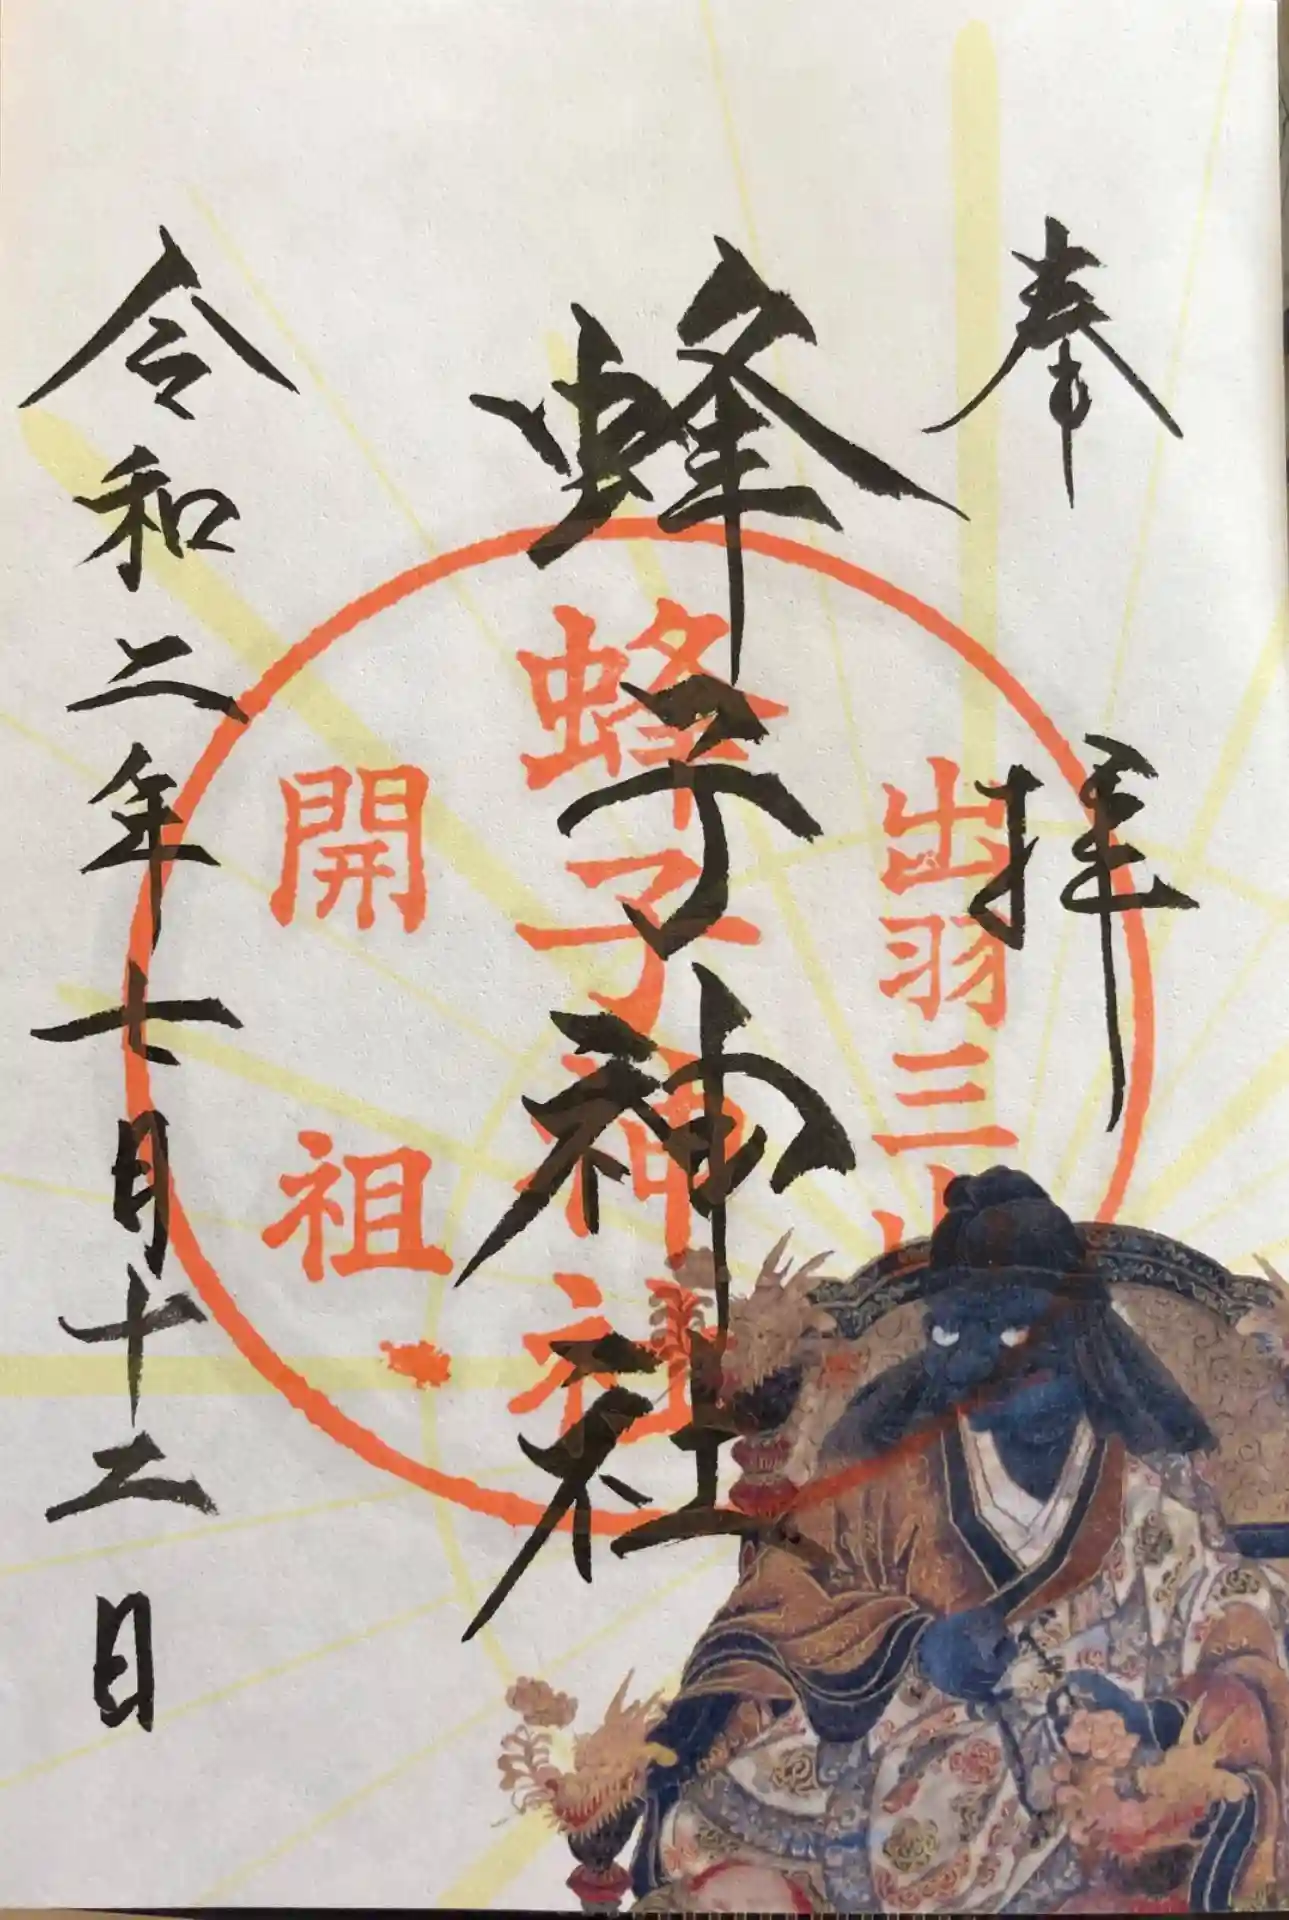 奉拝
出羽三山
蜂子神社
蜂子神社
開祖
令和二年七月十二日